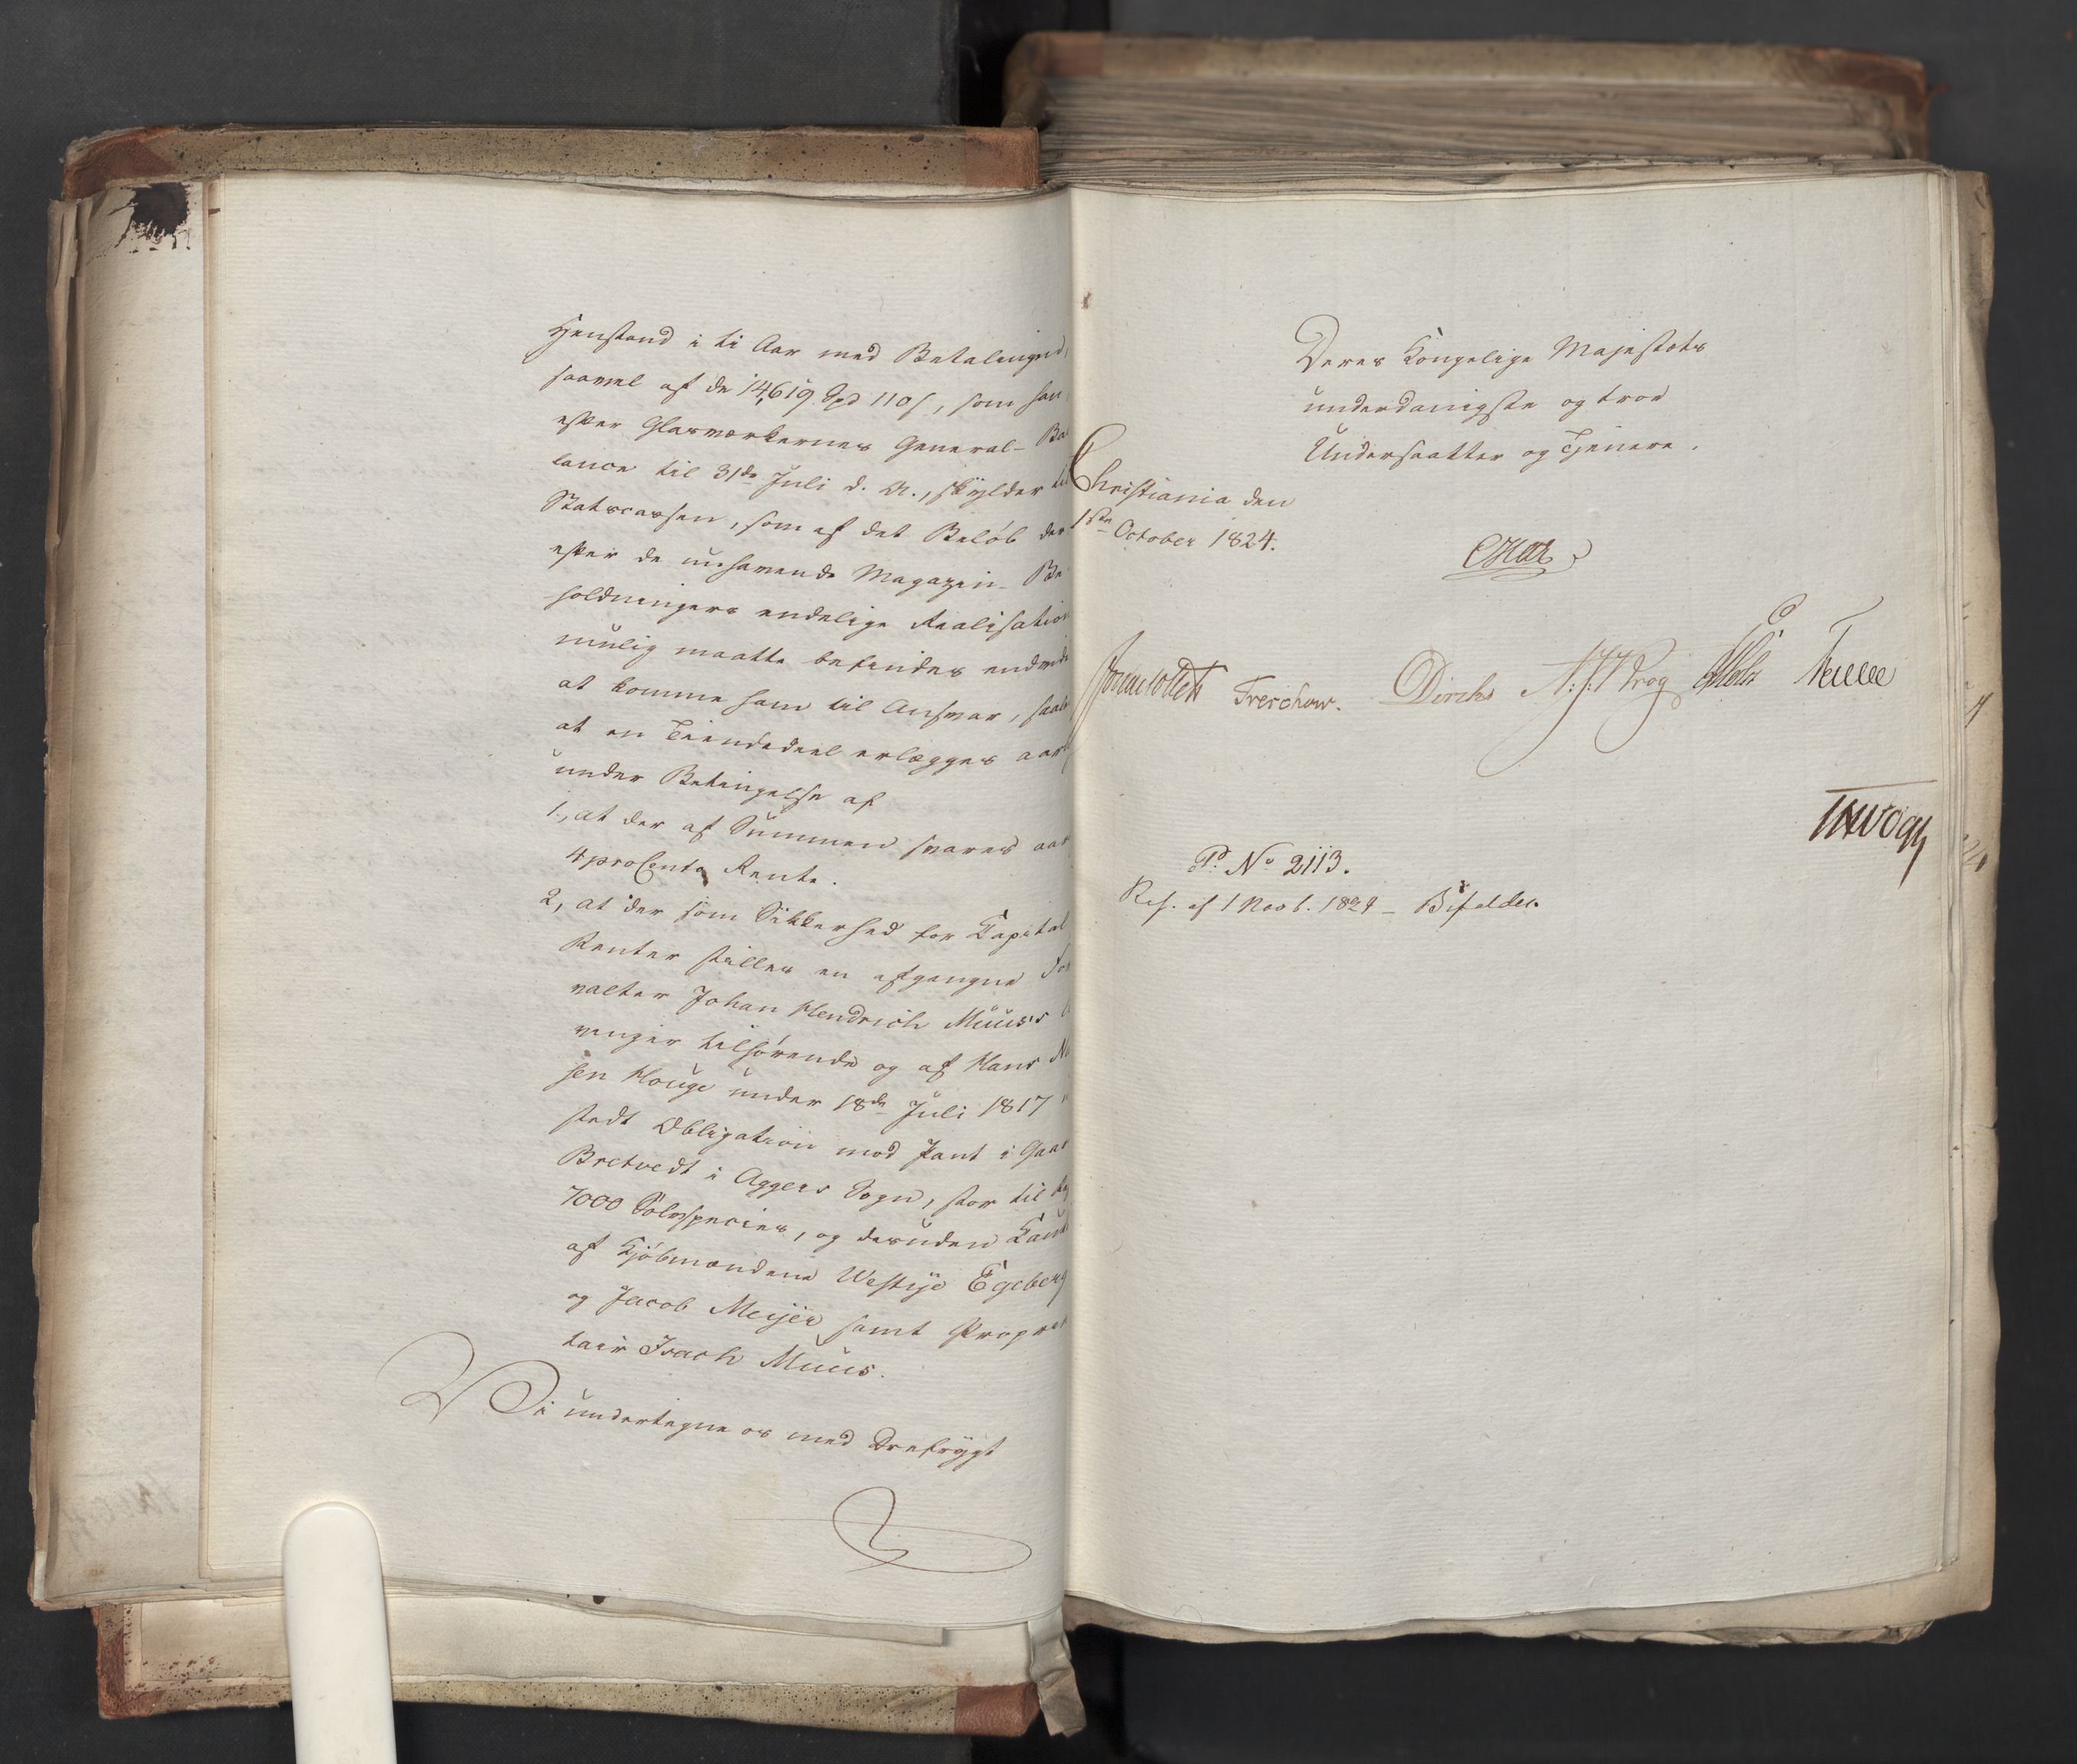 Henstand i ti Aar med Betalingen,
saavel af de 14,619 Spd 110 s, som han
efter Glasværkernes General-Ba
lance til 31de Juli d. A., skylder til
Statscassen, som af det Beløb der
efter de nuhavende Magazin-Be
holdningers endelige Realisation
mulig maatte befindes endvide
at komme ham til Ansvar, saale
at en Tiendedeel erlægges aarl
under Betingelse af
1, at der af Summen svares aar
4 proCento Rente.
2, at der som Sikkerhed for Capital
Renter stilles en afgangne For
valter Johan Hendrich Müüs's
vinger tilhørende og af Hans Ni
sen Houge under 18de Juli 1817
stedt Obligation mod Pant i Gaar
Bretvedt i Aggers Sogn, stor til
7000 Sølvspecies, og desuden Caut
af Kjøbmændene Westye Egeberg
og Jacob Meijer samt Propri
tair Isach Muus.
Vi undertegne os med Ærefrygt
Deres Kongelige Majestæts
underdanigste og troe
Undersaatter og Tjenere.
Christiania den
1ste October 1824.
Treschow. Diriks
Po No 2113.
Res. af 1 Novb. 1824 - Bifaldes.